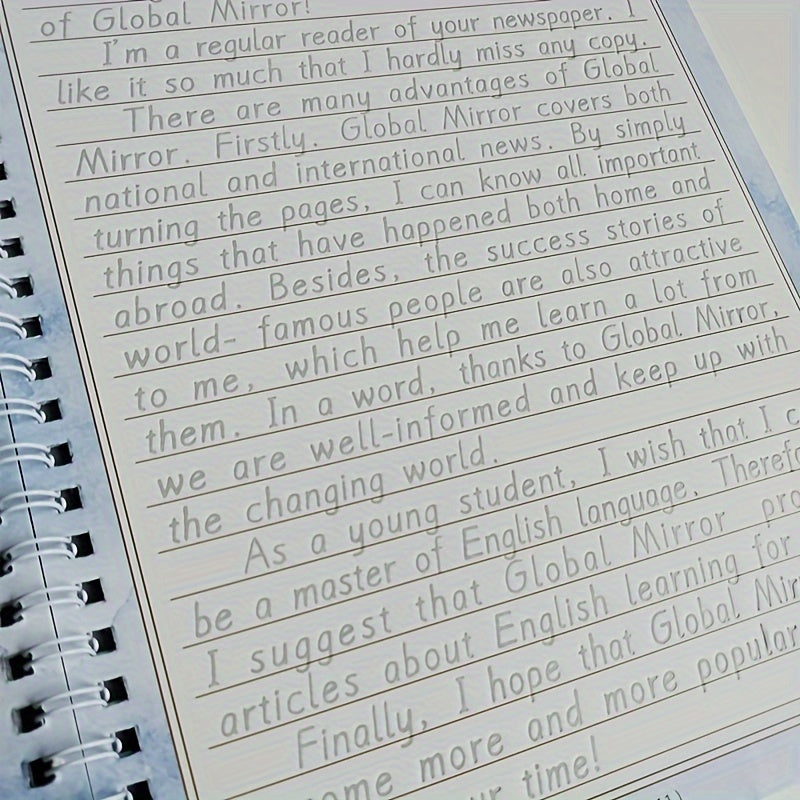 of Global Mirror!
I'm a regular reader of your newspaper. I
like it so much that I hardly miss any copy.
There are many advantages of Global
Mirror. Firstly. Global Mirror covers both
national and international news. By simply
turning the pages, I can know all important
things that have happened both home and
abroad. Besides, the success stories of
world- famous people are also attractive
to me, which help me learn a lot from
them. In a word, thanks to Global Mirror,
we are well-informed and keep up with
the changing world.
As a young student, I wish that I c
be a master of English language. Therefo
I suggest that Global Mirror pro
articles about English learning for
Finally, I hope that Global Mir
ome more and more popular
ur time!